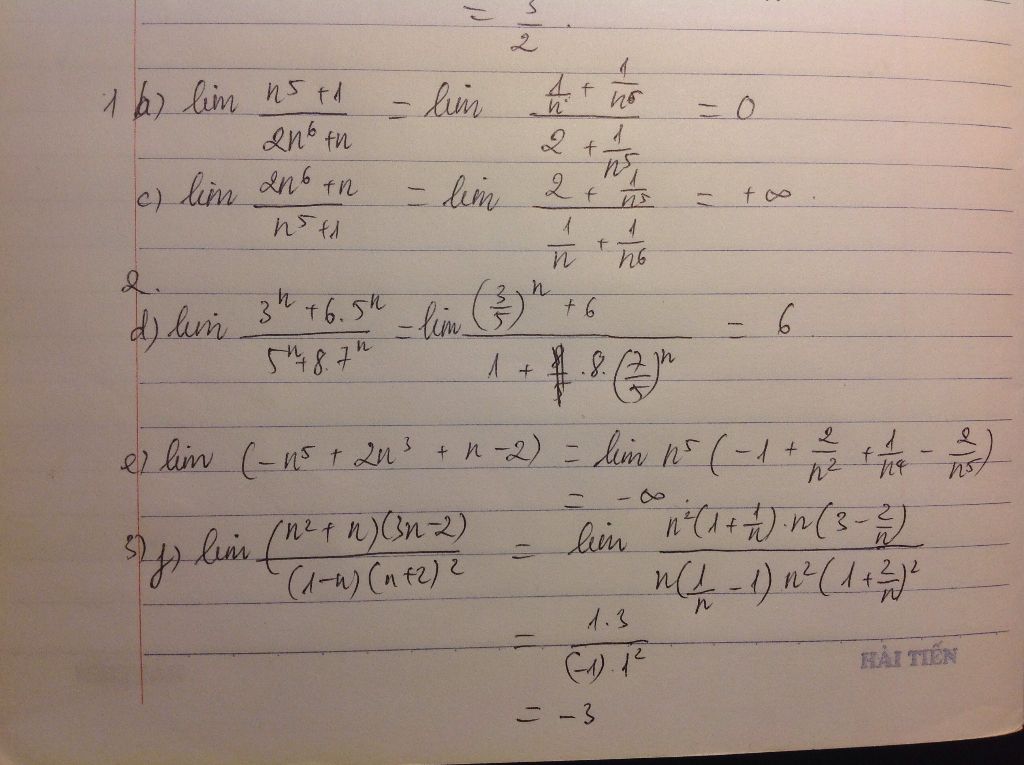 = 3/2.
1 b) lim (n⁵ + 1)/(2n⁶ + n) = lim (1/n + 1/n⁶)/(2 + 1/n⁵) = 0
c) lim (2n⁶ + n)/(n⁵ + 1) = lim (2 + 1/n⁵)/(1/n + 1/n⁶) = +∞.
2.
d) lim (3ⁿ + 6.5ⁿ)/(5ⁿ + 8.7ⁿ) = lim ((3/5)ⁿ + 6)/(1 + .8.(7/5)ⁿ) = 6
e) lim (-n⁵ + 2n³ + n - 2) = lim n⁵ (-1 + 2/n² + 1/n⁴ - 2/n⁵)
= -∞.
3) f) lim (n² + n)(3n - 2)/((1-n)(n+2)²) = lim (n²(1 + 1/n).n(3 - 2/n))/(n(1/n - 1) n²(1 + 2/n)²)
= 1.3/((-1).1²)
HẢI TIẾN
= -3